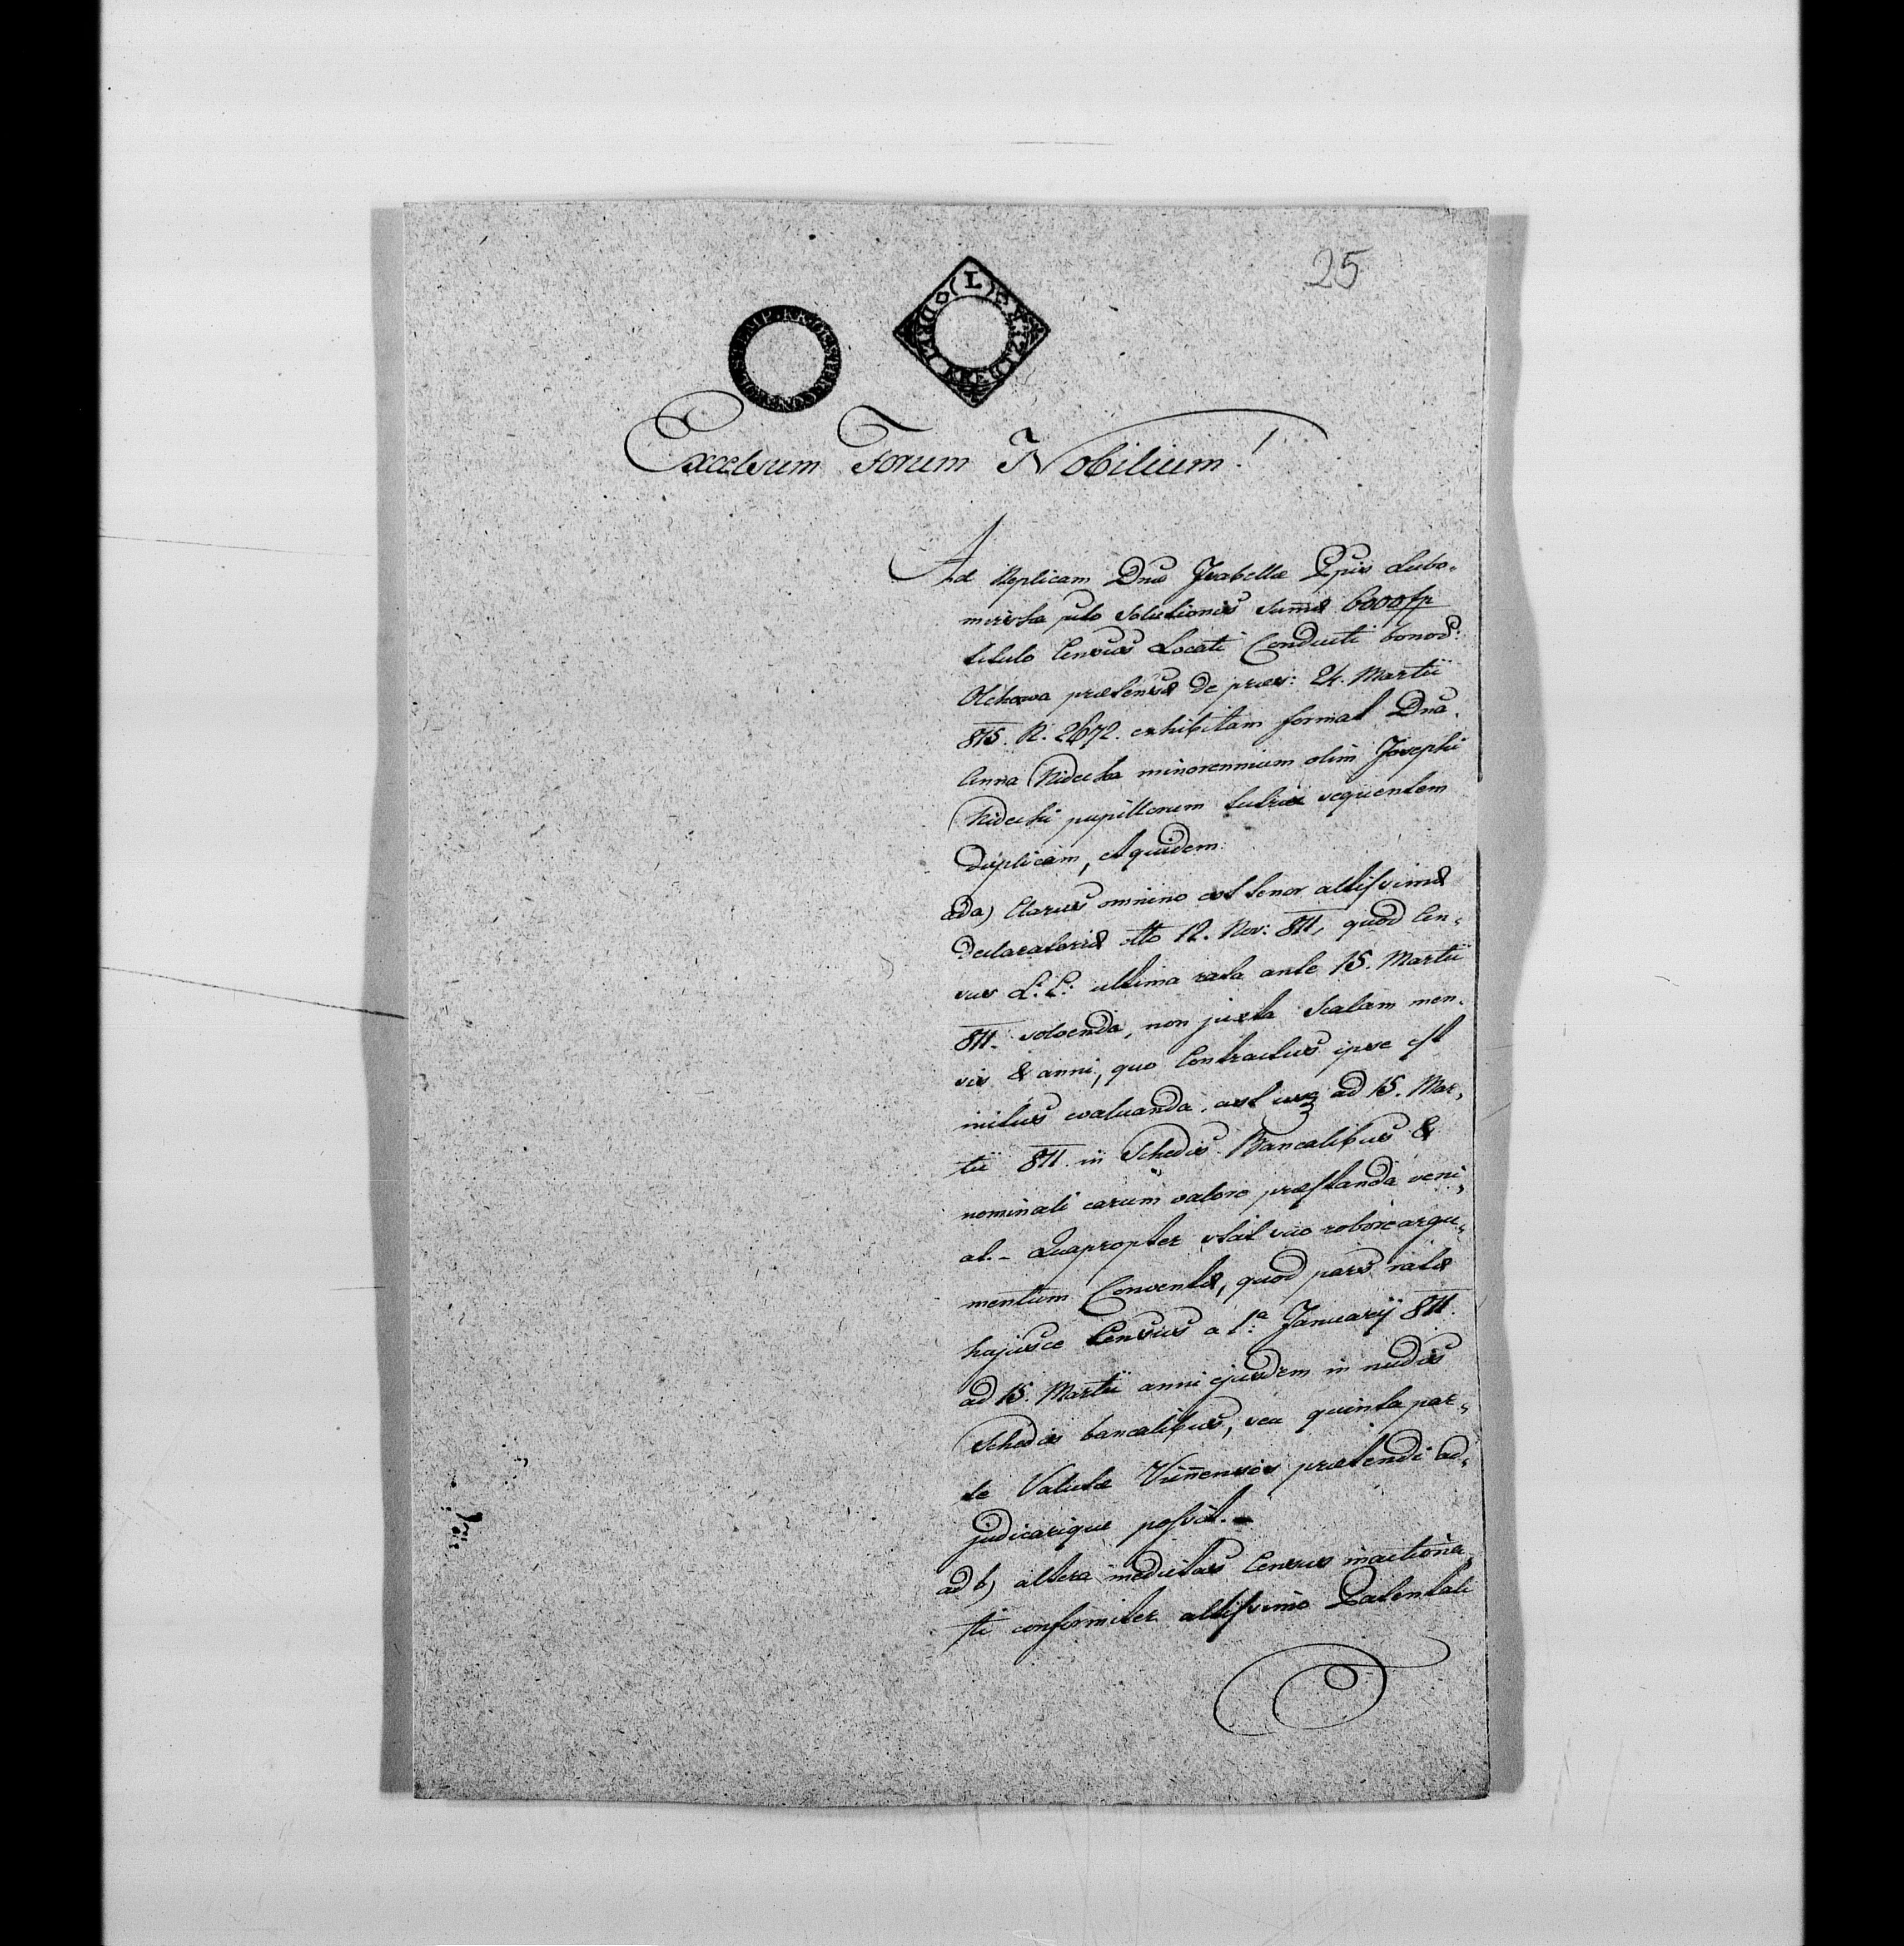 25
DREI KREUTZER (L)
Excelsum Forum Nobilium!
Ad Replicam Dnæ Isabellæ Ppis Lubo„
mirska pcto Solutionis Sumæ 6000 fp
titulo Census Locati Conducti bonor:
Olchowa prætensæ de præs: 24. Martii
815. N. 2672. exhibitam format Dna.
Anna Nidecka minorennium olim Josephi
Nidecki pupillorum tutrix sequentem
Duplicam, et quidem:
ad a) Clarus omnino est tenor altissimæ
Declaratoriæ dtto 12. Nov: 811, quod Cen„
sus L: C: ultima rata ante 15. Martii
811. solvenda, non juxta Scalam men„
sis & anni, quo Contractus ipse est
initus evaluanda, ast usq ad 15. Mar„
tii 811 in Schedis Bancalibus &
nominali earum valore præstanda veni„
at. – Quapropter stat suo robore argu„
mentum Conventæ, quod pars ratæ
hujusce Census a 1.a Januarij 811.
ad 15. Martii anni ejusdem in nudis
Schedis bancalibus, seu quinta par„
te Valutæ Viennensis prætendi ad„
judicarique possit. –
ad b) altera medietas Census inactiona„
ti conformiter altissimo Patentali